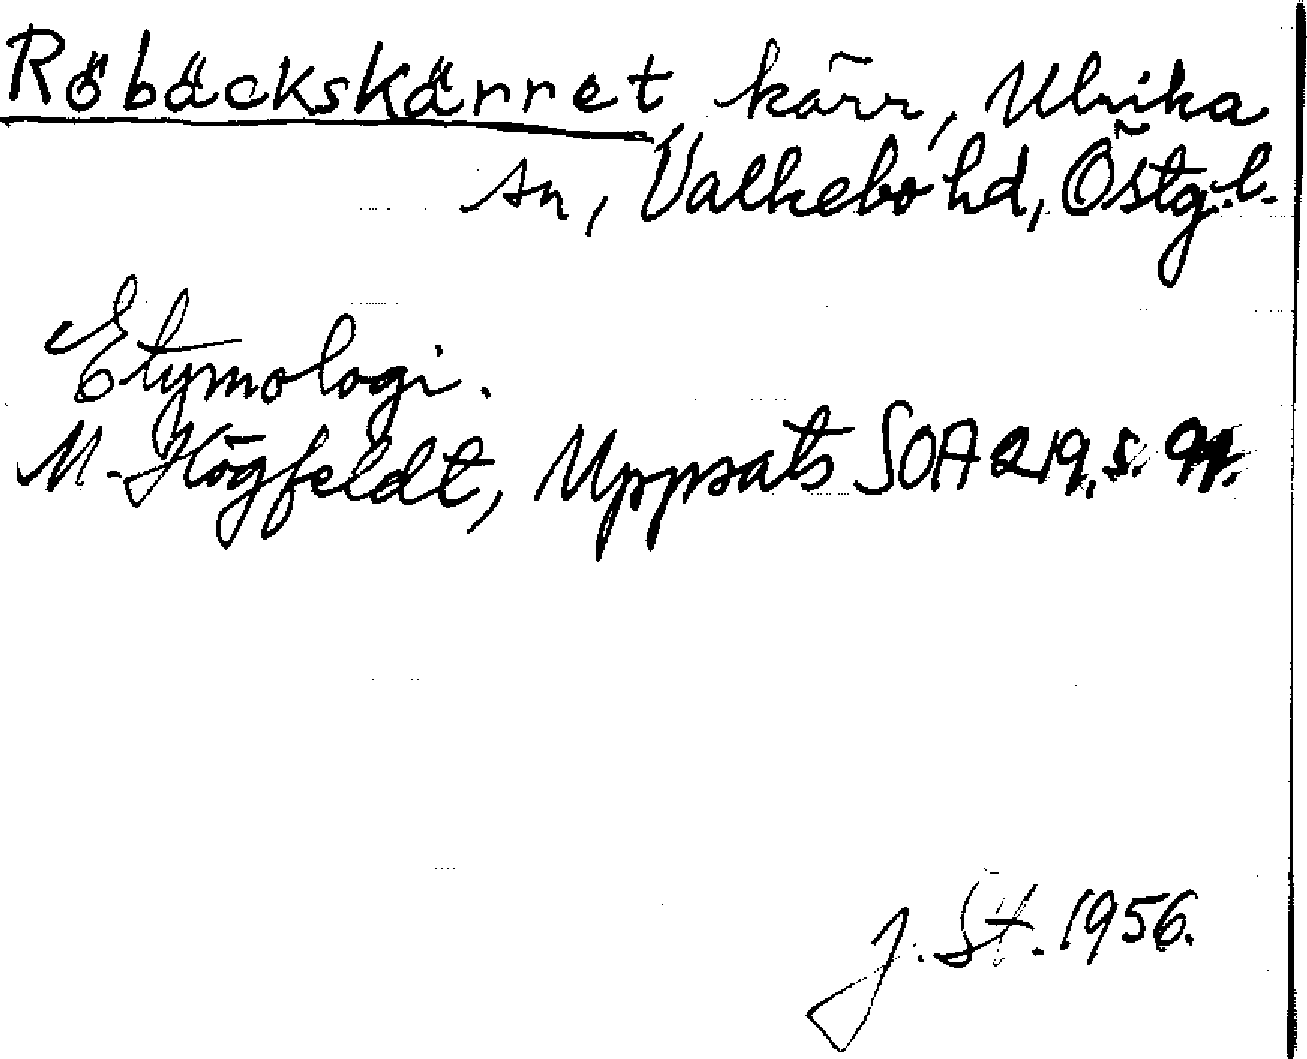 Röbäckskärret, kärr, Ulrika
sn, Valkebo hd, Östg. l.
Etymologi.
M. Högfeldt, Uppsats SOA 219, s.
J. St. 1956.